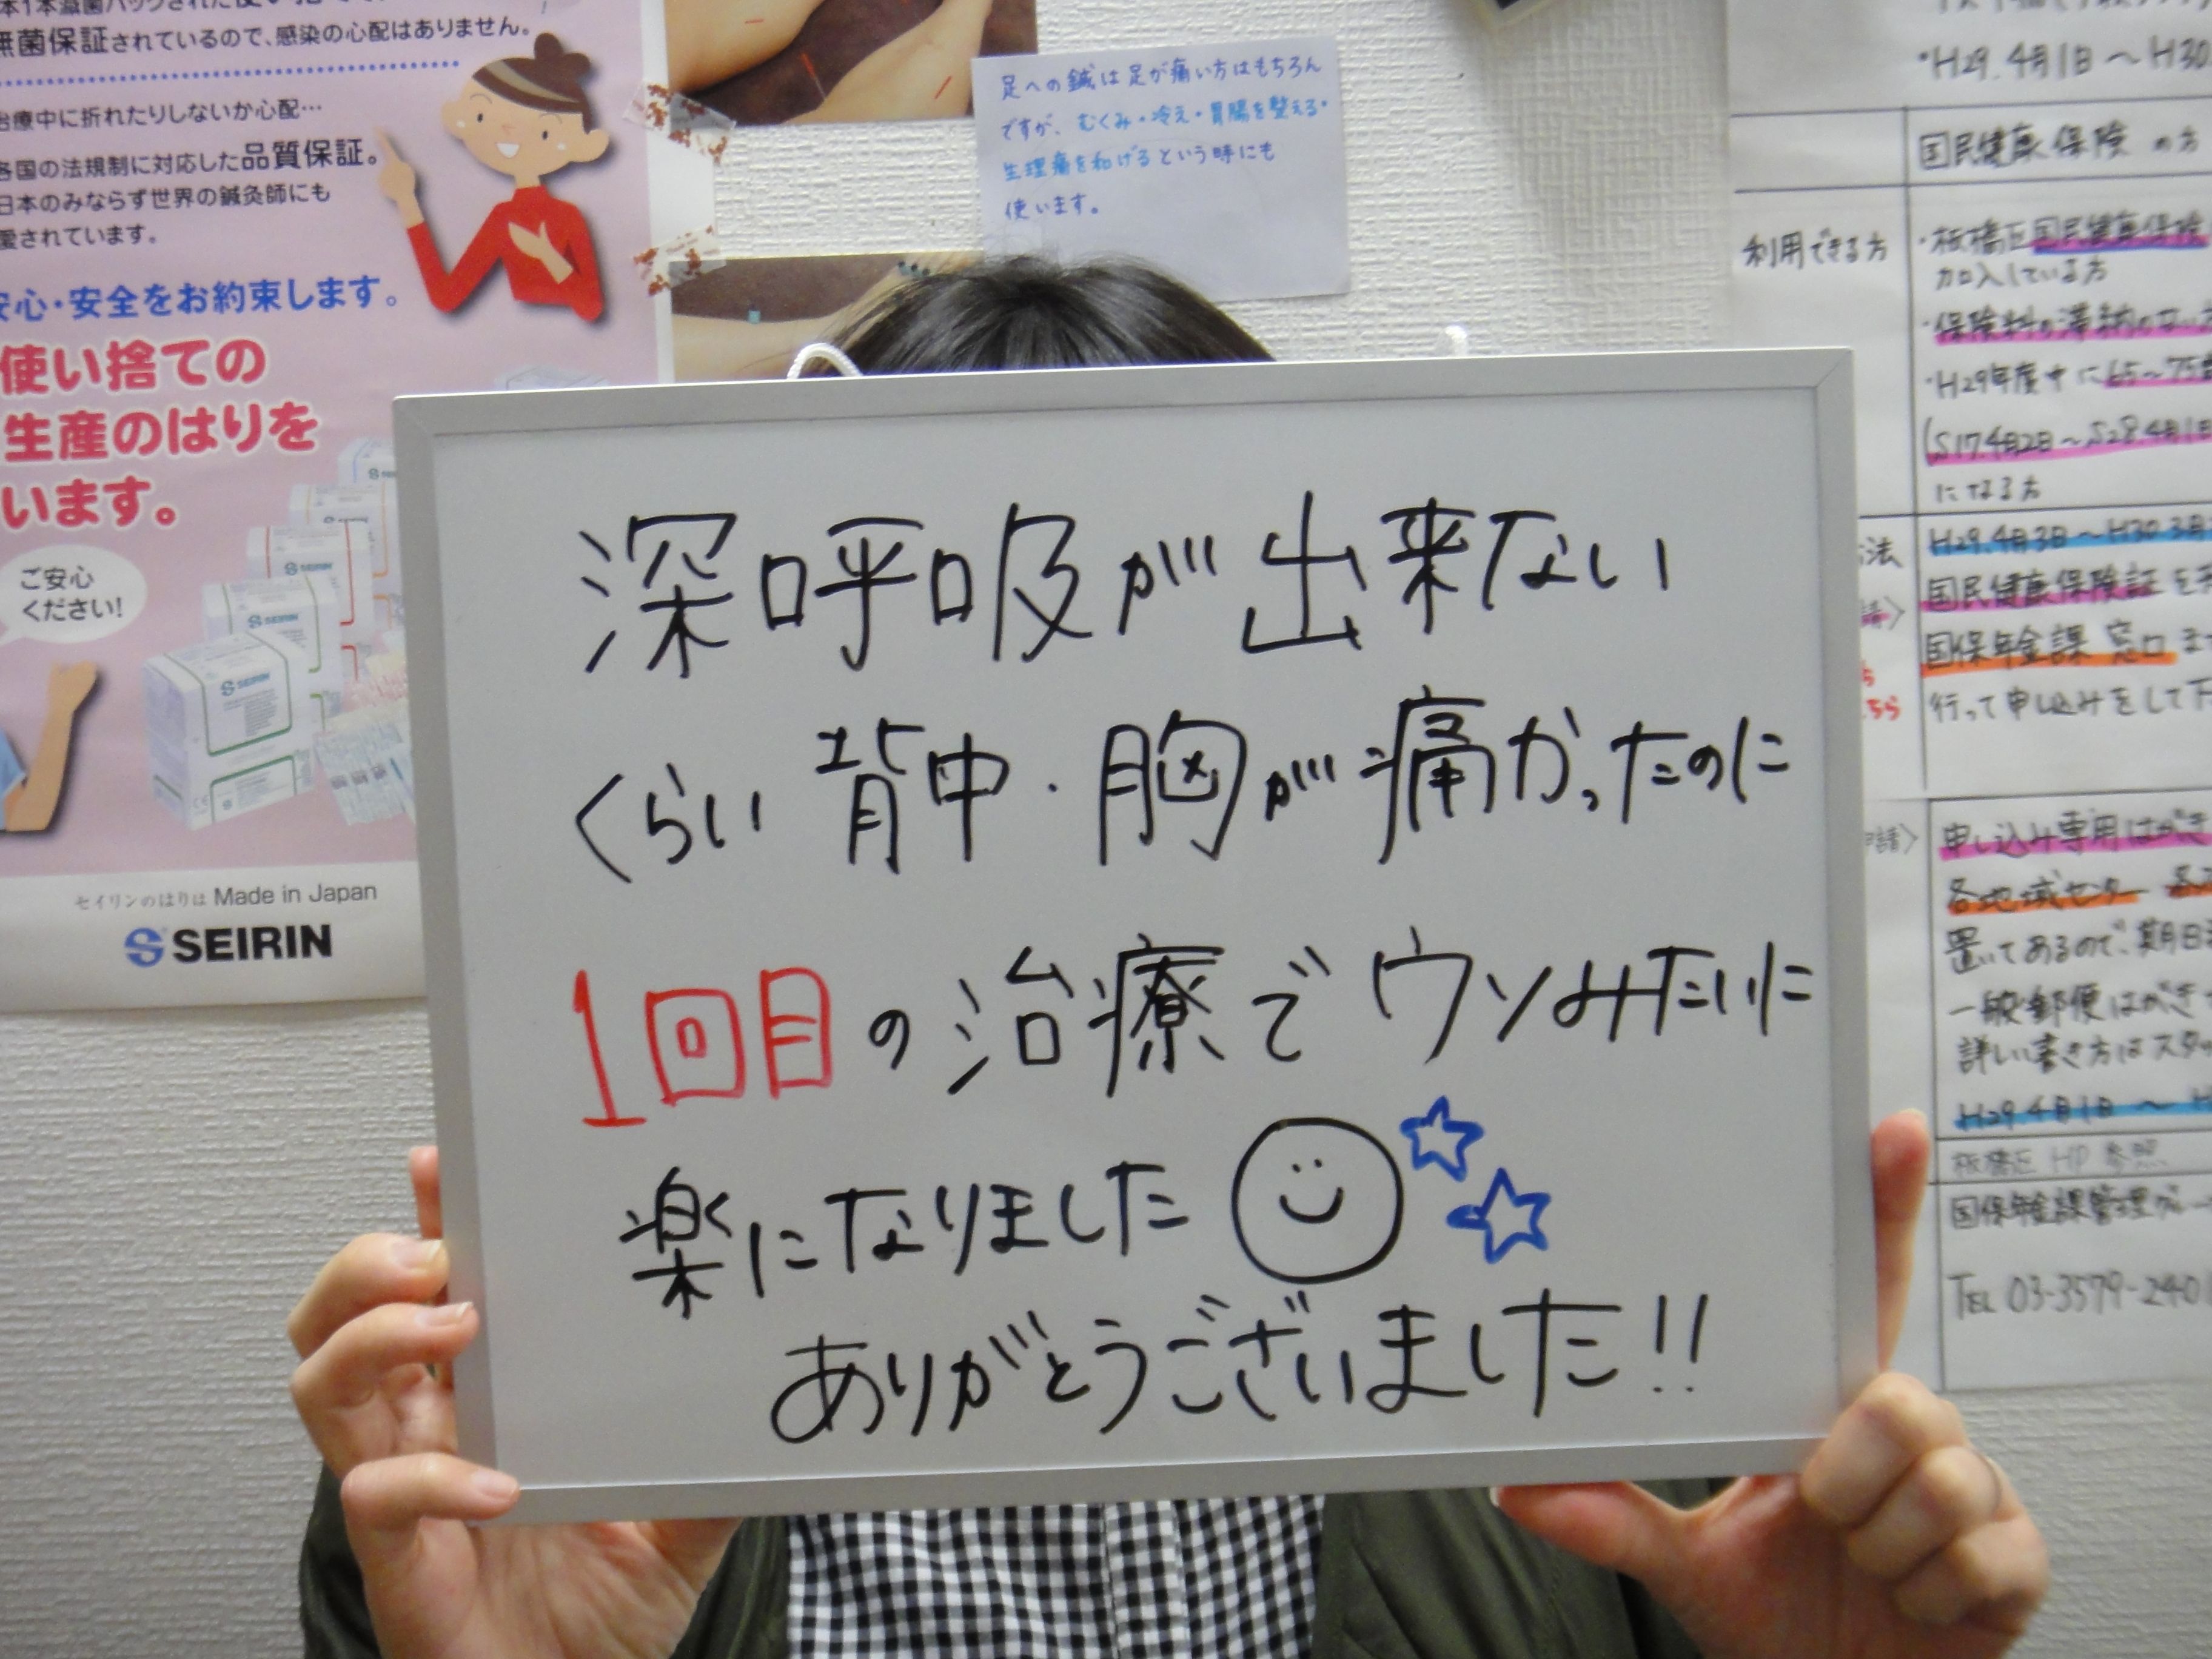 無菌保証されているので、感染の心配はありません。
治療中に折れたりしないか心配…
各国の法規制に対応した品質保証。
日本のみならず世界の鍼灸師にも
愛されています。
安心・安全をお約束します。
使い捨ての
生産のはりを
います。
SEIRIN
SEIRIN
SEIRIN
ご安心
ください!
セイリンのはりは Made in Japan
SEIRIN
足への鍼は足が痛い方はもちろん
ですが、むくみ・冷え・胃腸を整える・
生理痛を和げるという時にも
使います。
深呼吸が出来ない
くらい背中・胸が痛かったのに
1回目の治療でウソみたいに
楽になりました
ありがとうございました!!
・H29.4月1日～H30.
国民健康保険の方
利用できる方
・板橋区国民健康保険
加入している方
・保険料の滞納のない
・H29年度中に65～75歳
(S17.4月2日～S28.4月1日
になる方
法
H29.4月3日～H30.3月
国民健康保険証を
国保年金課 窓口ま
行って申し込みをして下
申し込み専用はがき
各地域センター
置いてあるので、期日
一般郵便はがき
詳しい書き方はスタッ
H29.4月1日～H
板橋区HP参照
国保年金課管理グルー
TEL 03-3579-240